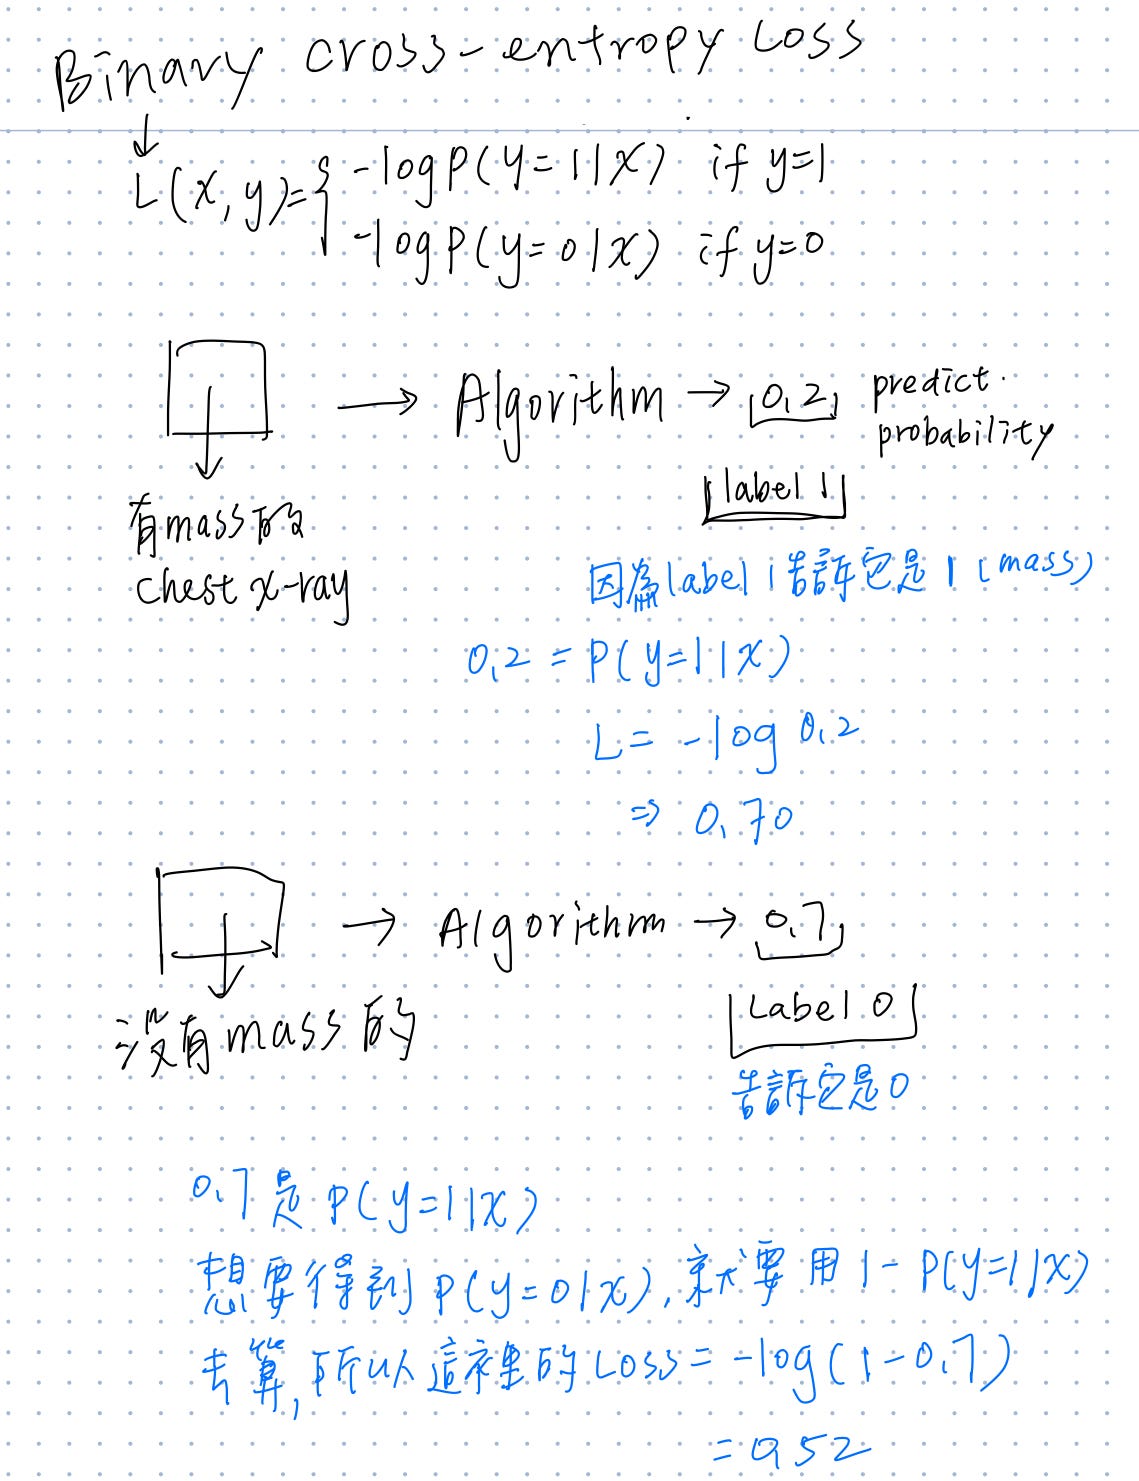 Binary cross-entropy Loss
L(x, y)= { -log P(y=1|x) if y=1
-log P(y=0|x) if y=0
→ Algorithm → 0.2 predict.
probability
label 1
有mass的
chest x-ray
因為label 1告訴它是 1 (mass)
0.2 = P(y=1|x)
L = -log 0.2
⇒ 0.70
→ Algorithm → 0.7
沒有mass的
Label 0
告訴它是0
0.7是P(y=1|x)
想要得到P(y=0|x), 就要用1-P(y=1|x)
去算, 所以這裡的Loss = -log(1-0.7)
= 0.52